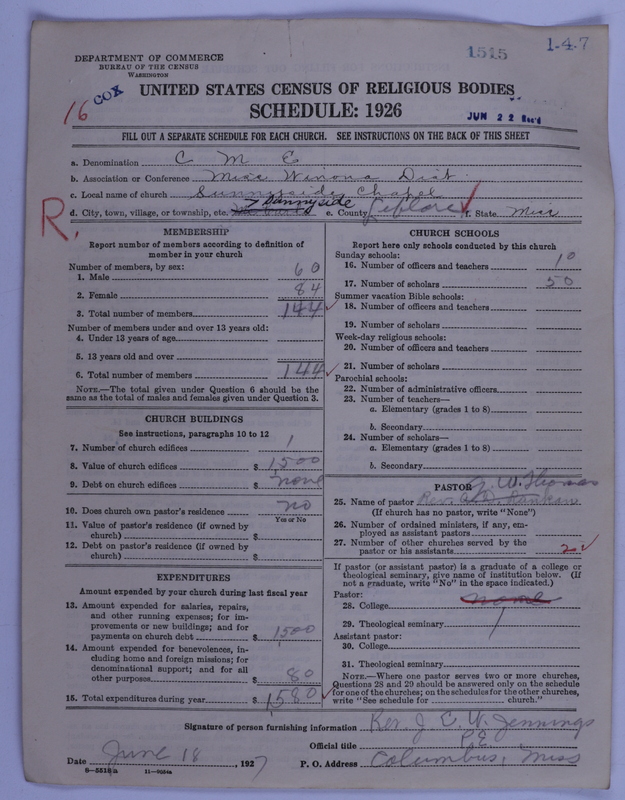 1515
1-4-7
DEPARTMENT OF COMMERCE
BUREAU OF THE CENSUS
WASHINGTON
16 COX
UNITED STATES CENSUS OF RELIGIOUS BODIES
SCHEDULE: 1926
JUN 22 Rec'd
FILL OUT A SEPARATE SCHEDULE FOR EACH CHURCH. SEE INSTRUCTIONS ON THE BACK OF THIS SHEET
a. Denomination C M E
b. Association or Conference Miss Winona Dist
c. Local name of church Sunnyside Chapel
d. City, town, village, or township, etc. e. County Leflore f. State Miss
R.
MEMBERSHIP
Report number of members according to definition of member in your church
Number of members, by sex:
1. Male 60
2. Female 84
3. Total number of members 144
Number of members under and over 13 years old:
4. Under 13 years of age
5. 13 years old and over
6. Total number of members 144
NOTE.—The total given under Question 6 should be the same as the total of males and females given under Question 3.
CHURCH BUILDINGS
See instructions, paragraphs 10 to 12
7. Number of church edifices 1
8. Value of church edifices $ 1500
9. Debt on church edifices $ none
10. Does church own pastor's residence no
Yes or No
11. Value of pastor's residence (if owned by church) $
12. Debt on pastor's residence (if owned by church) $
EXPENDITURES
Amount expended by your church during last fiscal year
13. Amount expended for salaries, repairs, and other running expenses; for improvements or new buildings; and for payments on church debt $ 1500
14. Amount expended for benevolences, including home and foreign missions; for denominational support; and for all other purposes $ 80
15. Total expenditures during year $ 1580
CHURCH SCHOOLS
Report here only schools conducted by this church
Sunday schools:
16. Number of officers and teachers 10
17. Number of scholars 50
Summer vacation Bible schools:
18. Number of officers and teachers
19. Number of scholars
Week-day religious schools:
20. Number of officers and teachers
21. Number of scholars
Parochial schools:
22. Number of administrative officers
23. Number of teachers—
a. Elementary (grades 1 to 8)
b. Secondary
24. Number of scholars—
a. Elementary (grades 1 to 8)
b. Secondary
PASTOR
W. Thomas
25. Name of pastor Rev.
(If church has no pastor, write "None")
26. Number of ordained ministers, if any, employed as assistant pastors
27. Number of other churches served by the pastor or his assistants
If pastor (or assistant pastor) is a graduate of a college or theological seminary, give name of institution below. (If not a graduate, write "No" in the space indicated.)
Pastor:
28. College none
29. Theological seminary
Assistant pastor:
30. College
31. Theological seminary
NOTE.—Where one pastor serves two or more churches, Questions 28 and 29 should be answered only on the schedule for one of the churches; on the schedules for the other churches, write "See schedule for church."
Signature of person furnishing information Rev. J. E. W. Jennings
Official title P. E.
Date June 18, 1927 P. O. Address Columbus, Miss
8-5518a 11-9084a